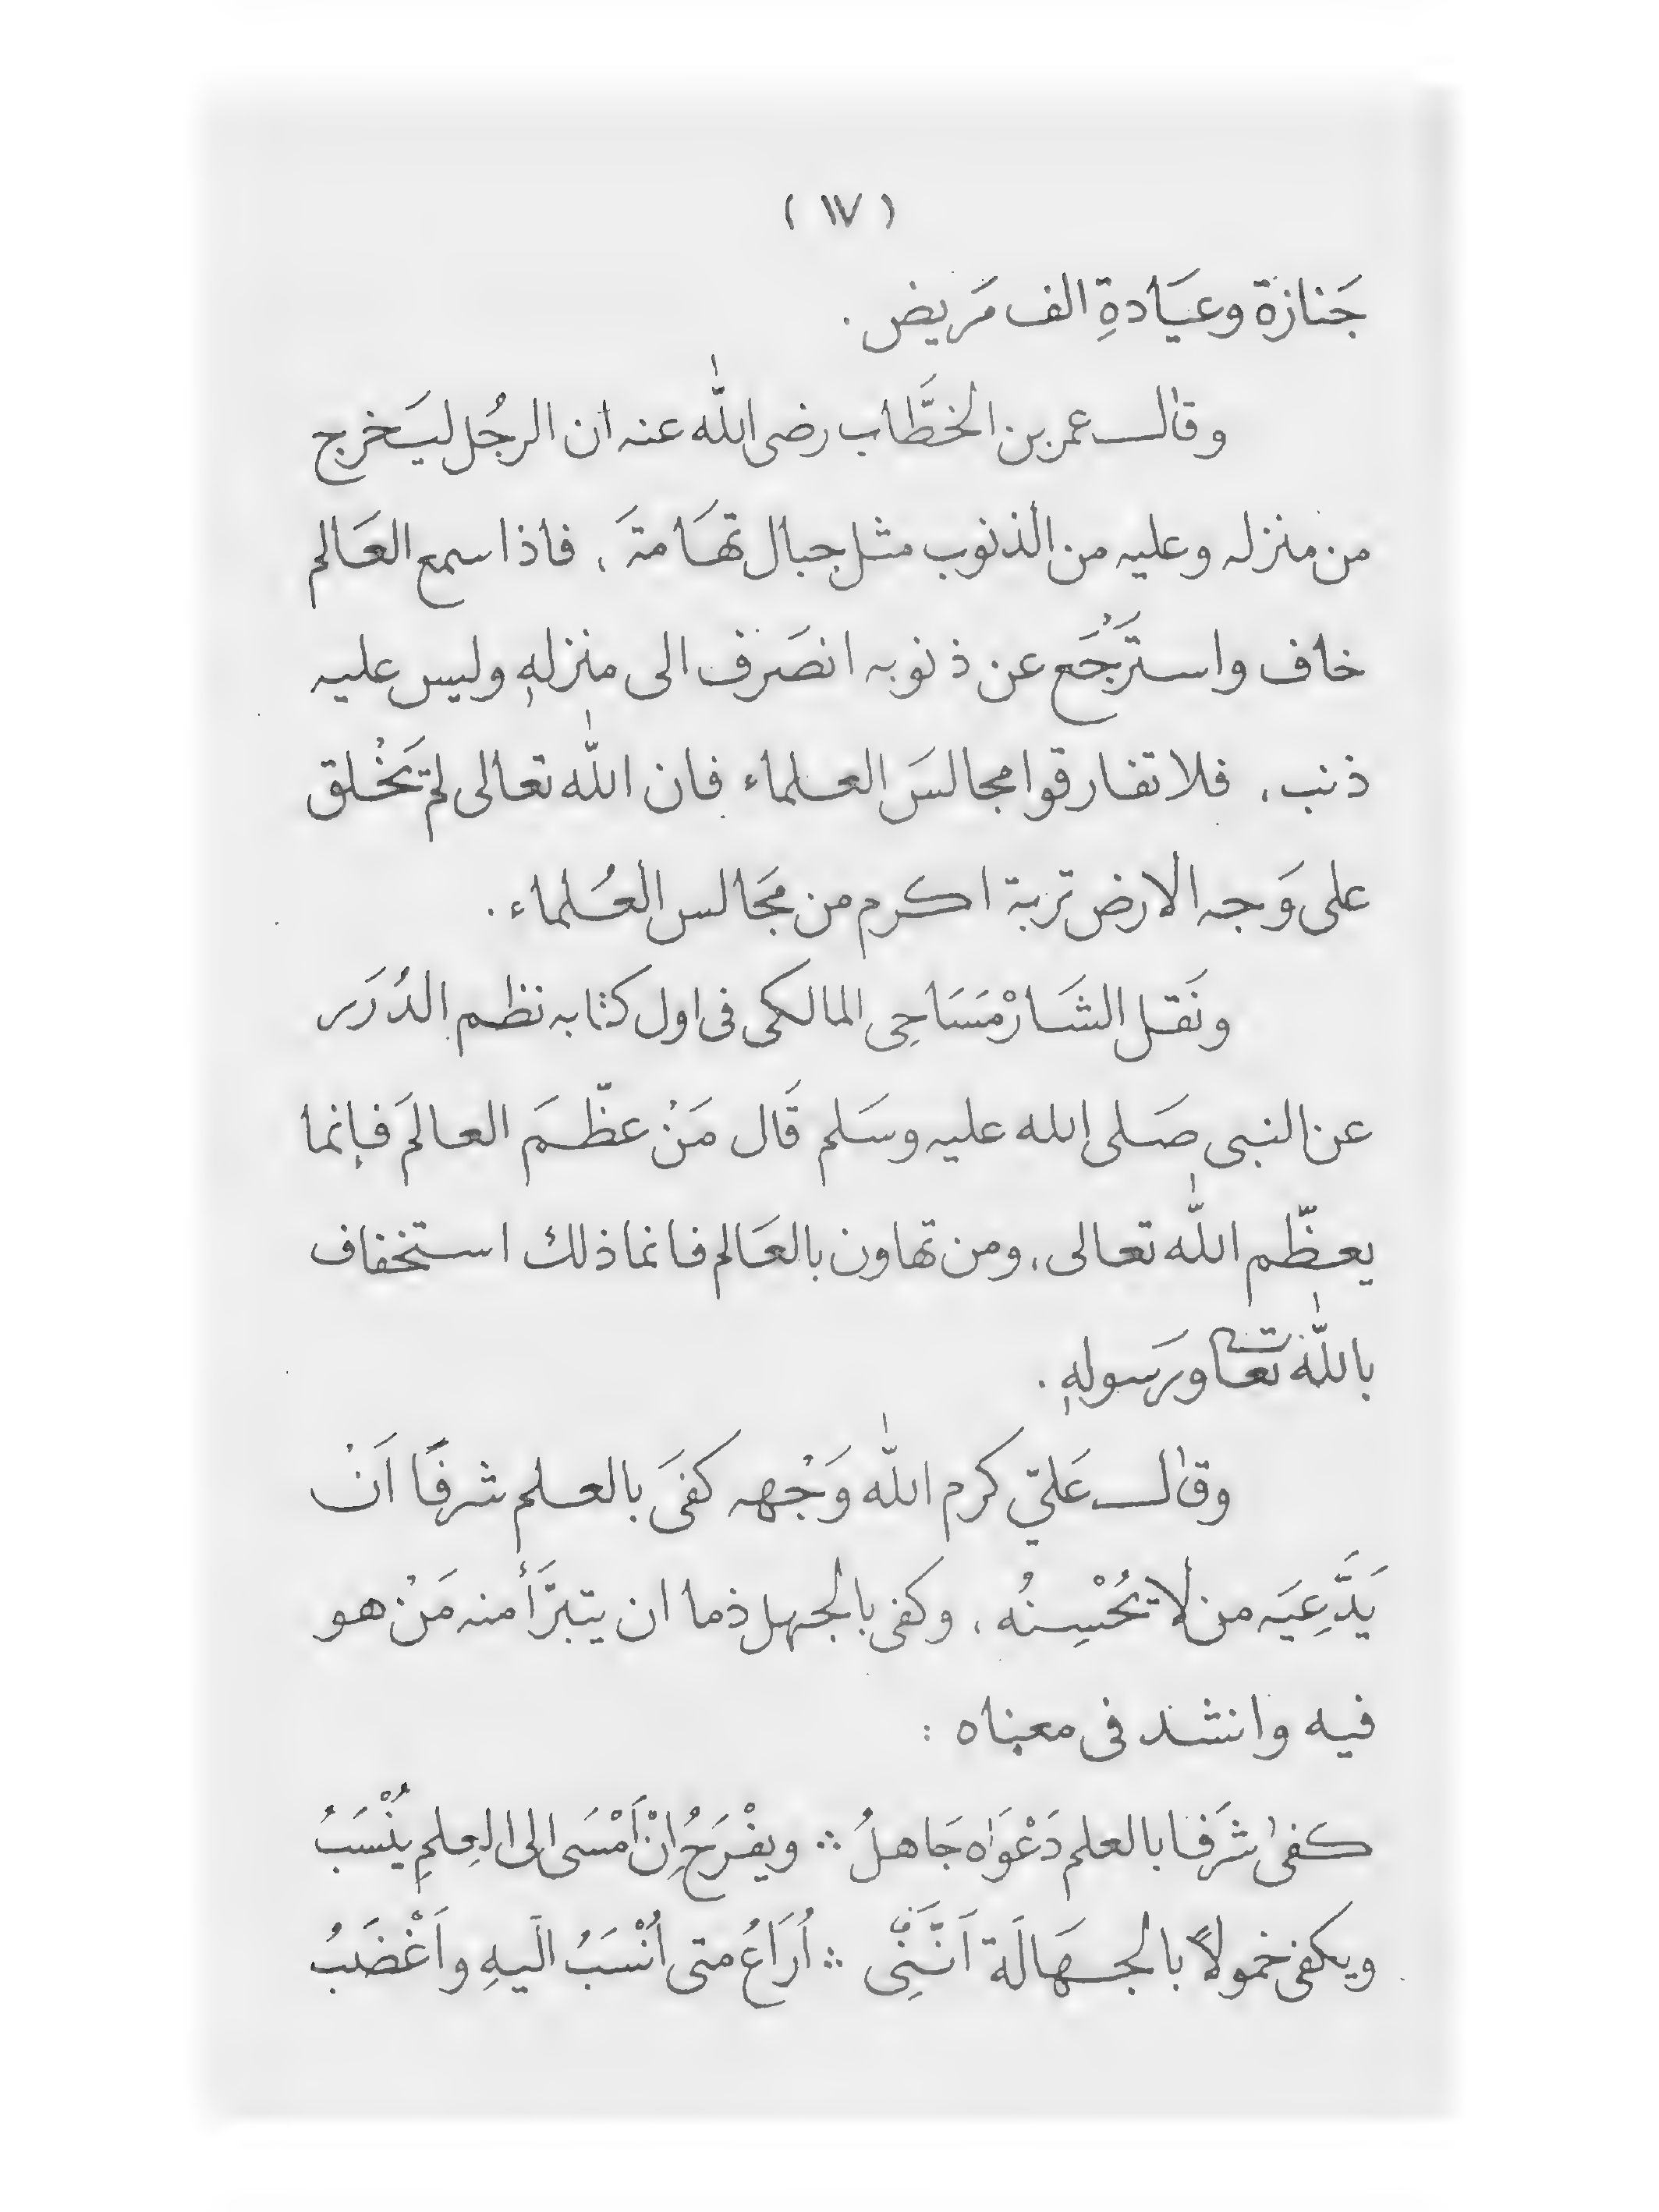 ( ١٧ )
جَنازة وعيَادةِ الف مَريض .
وقال عمر بن الخطَّاب رضى اللّٰه عنه ان الرجُل ليَخرج
من منزله وعليه من الذنوب مثل جبال تهَامةَ ، فاذا سمع العَالم
خاف واستَرْجَع عن ذنوبه انصَرف الى منزلهٖ وليس عليه
ذنب ، فلا تفارقوا مجالسَ العلماء فان اللّٰه تعالى لم يَخْلق
على وَجه الارض تربة اكرم من مجَالس العُلماء .
ونَقل الشَارْمَسَاحِى المالكى فى اول كتابه نظم الدُرَر
عن النبى صَلى الله عليه وسَلم قَال مَنْ عظّمَ العالَم فإنما
يعظّم اللّٰه تعالى ، ومن تهاون بالعَالم فانما ذلك استخفاف
باللّٰه تعا ورَسولهٖ .
وقال عَليّ كرم اللّٰه وَجْهه كفَى بالعلم شرفًا اَنْ
يَدَّعِيَه من لا يُحْسِنُه ، وكفى بالجهل ذما ان يتبرَّأ منه مَنْ هو
فيه وانشد فى معناه :
كفىٰ شَرَفا بالعلم دَعْوَاه جَاهلُ ∴ ويفْرَحُ اِنْ اَمْسَى الى العِلمِ يُنْسَبُ
ويكفى خمولاً بالجهَالَة اَنَّنِى ∴ اُرَاعُ متى اُنْسَبُ الَيهِ واَغْضَبُ